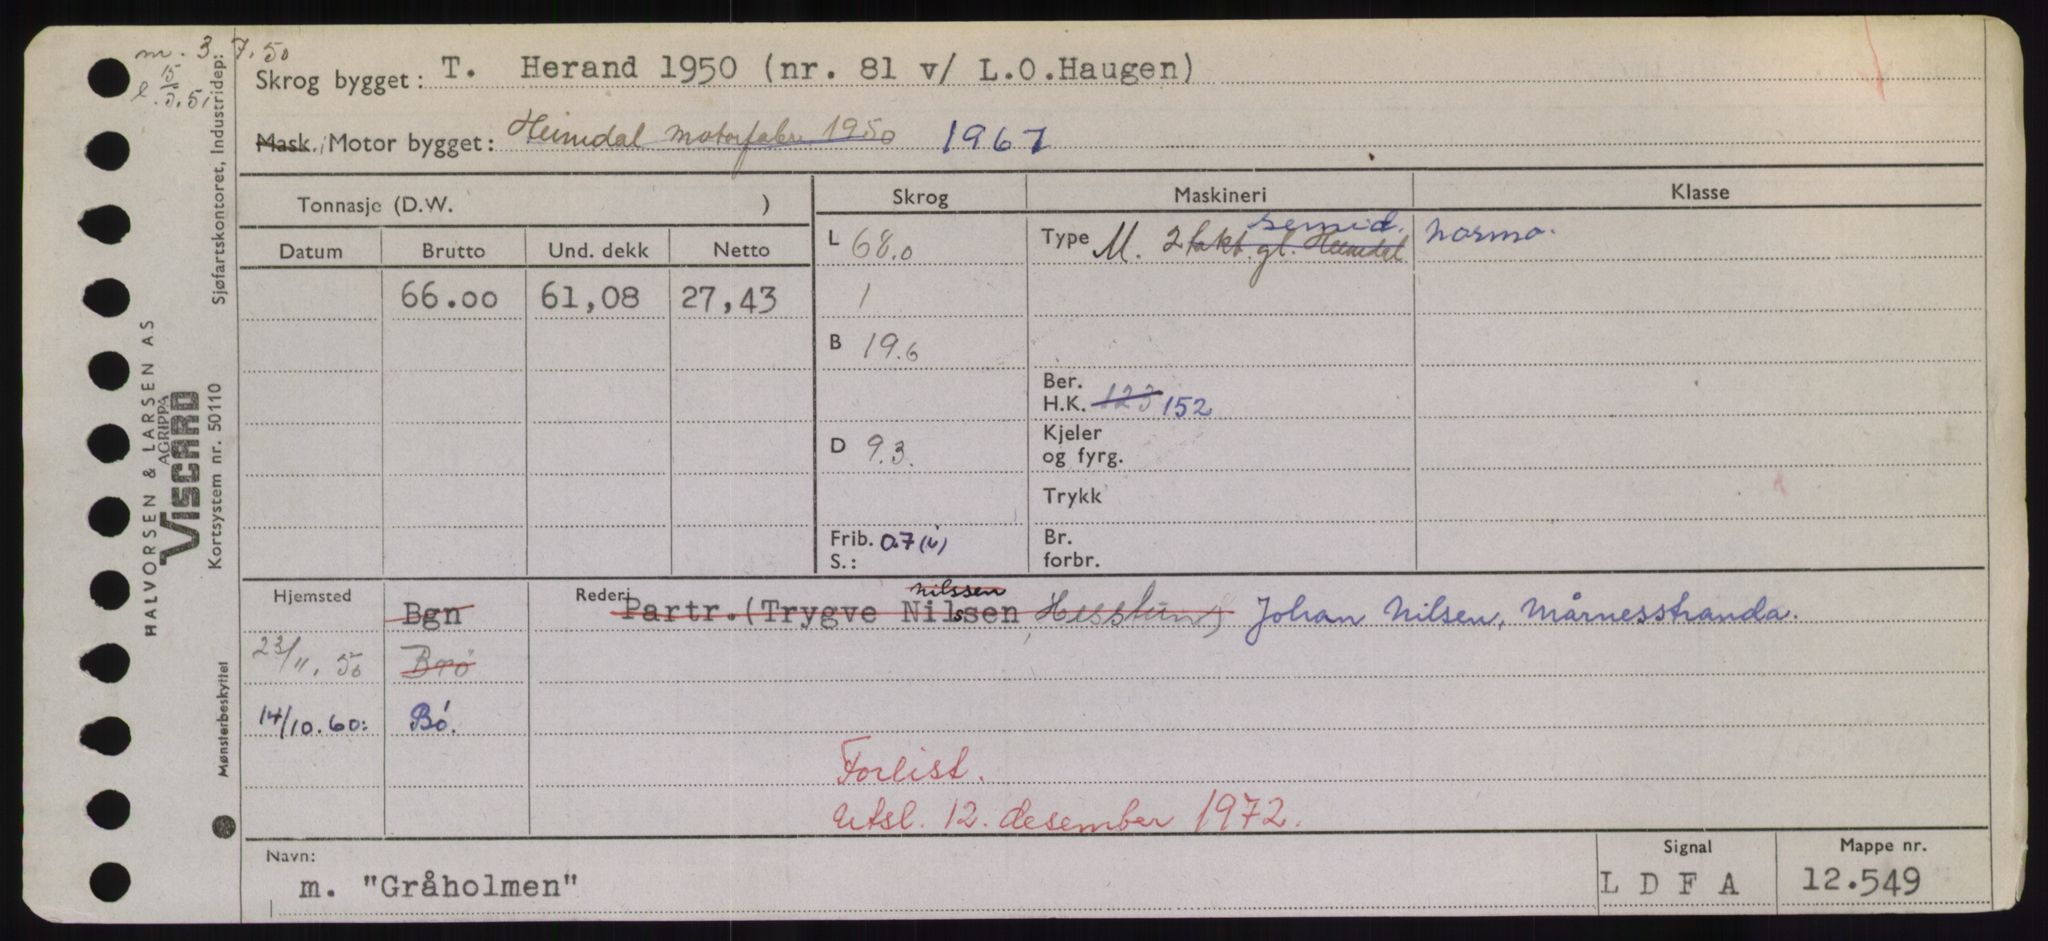 m. 3. 7. 50
l. 15/3. 51
Skrog bygget: T. Herand 1950 (nr. 81 v/ L.O.Haugen)
Mask./Motor bygget: Heimdal motorfabr 1950 1967
Tonnasje (D.W. ) Skrog Maskineri Klasse
Datum Brutto Und. dekk Netto
L 68.0 Type M. 2 takt. gl. Heimdal semid. normo.
66.00 61,08 27,43 1
B 19.6
Ber.
H.K. 123 152
D 9.3. Kjeler
og fyrg.
Trykk
Frib. 0.7 (i) Br.
S.: forbr.
Hjemsted Bgn Rederi Partr. (Trygve Nilssen nilssen Hesstun) Johan Nilsen, Mårnesstranda.
23/11. 50 Brø
14/10. 60: Bó.
Forlist.
Utsl. 12. desember 1972.
Navn: Signal Mappe nr.
m. "Gråholmen" L D F A 12.549
HALVORSEN & LARSEN AS
AGRIPPA
VISCARD
Kortsystem nr. 50110
Sjøfartskontoret, Industridep:
Mønsterbeskyttet